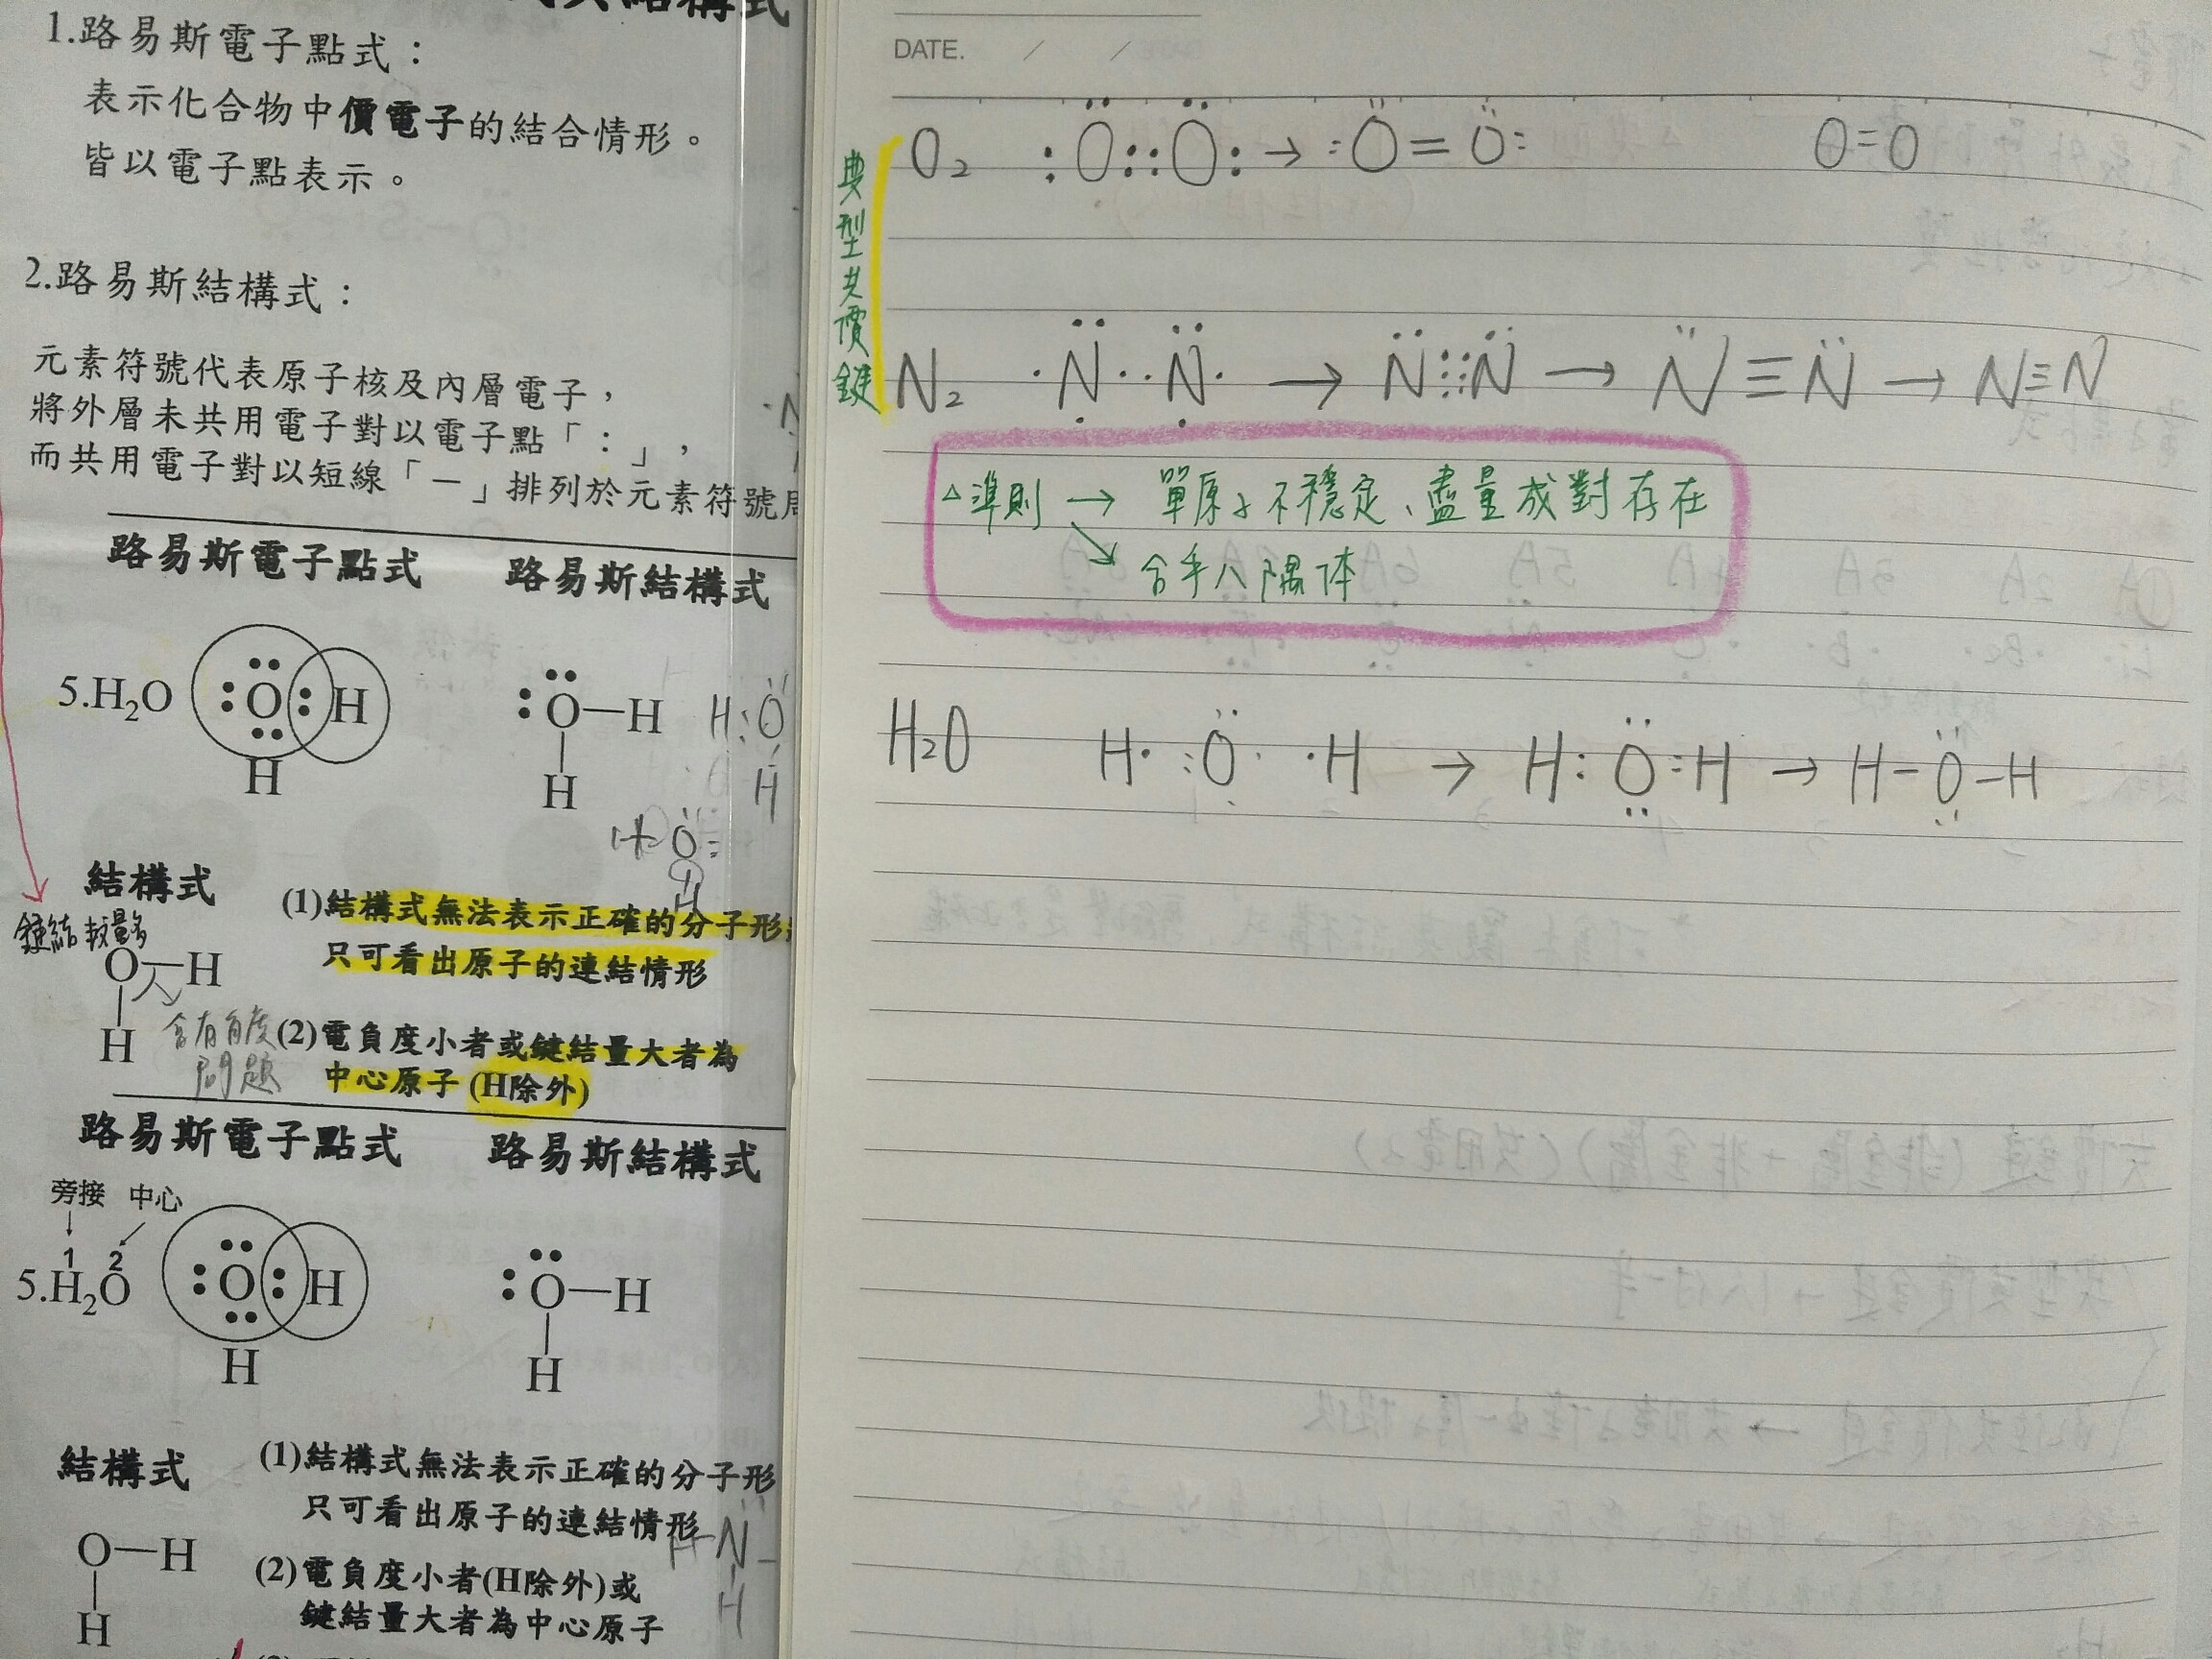 1.路易斯電子點式：
表示化合物中價電子的結合情形。
皆以電子點表示。
2.路易斯結構式：
元素符號代表原子核及內層電子，
將外層未共用電子對以電子點「：」，
而共用電子對以短線「－」排列於元素符號
路易斯電子點式 路易斯結構式
5.H₂O
O H
H
O—H
H
H:O
H
H O
H
結構式
鍵結較量多
O—H
H
含有角度
問題
(1)結構式無法表示正確的分子形
只可看出原子的連結情形
(2)電負度小者或鍵結量大者為
中心原子(H除外)
路易斯電子點式 路易斯結構式
旁接 中心
1 2
5.H₂O
O H
H
O—H
H
結構式
O—H
H
(1)結構式無法表示正確的分子形
只可看出原子的連結情形
(2)電負度小者(H除外)或
鍵結量大者為中心原子
H-N-
H
DATE. / /
典型共價鍵
O₂ :O::O: → :O=O: O=O
N₂ ·N··N· → N:::N → N≡N → N≡N
△準則 → 單原子不穩定、盡量成對存在
↘ 合乎八隅体
H₂O H· :O· ·H → H:O:H → H-O-H